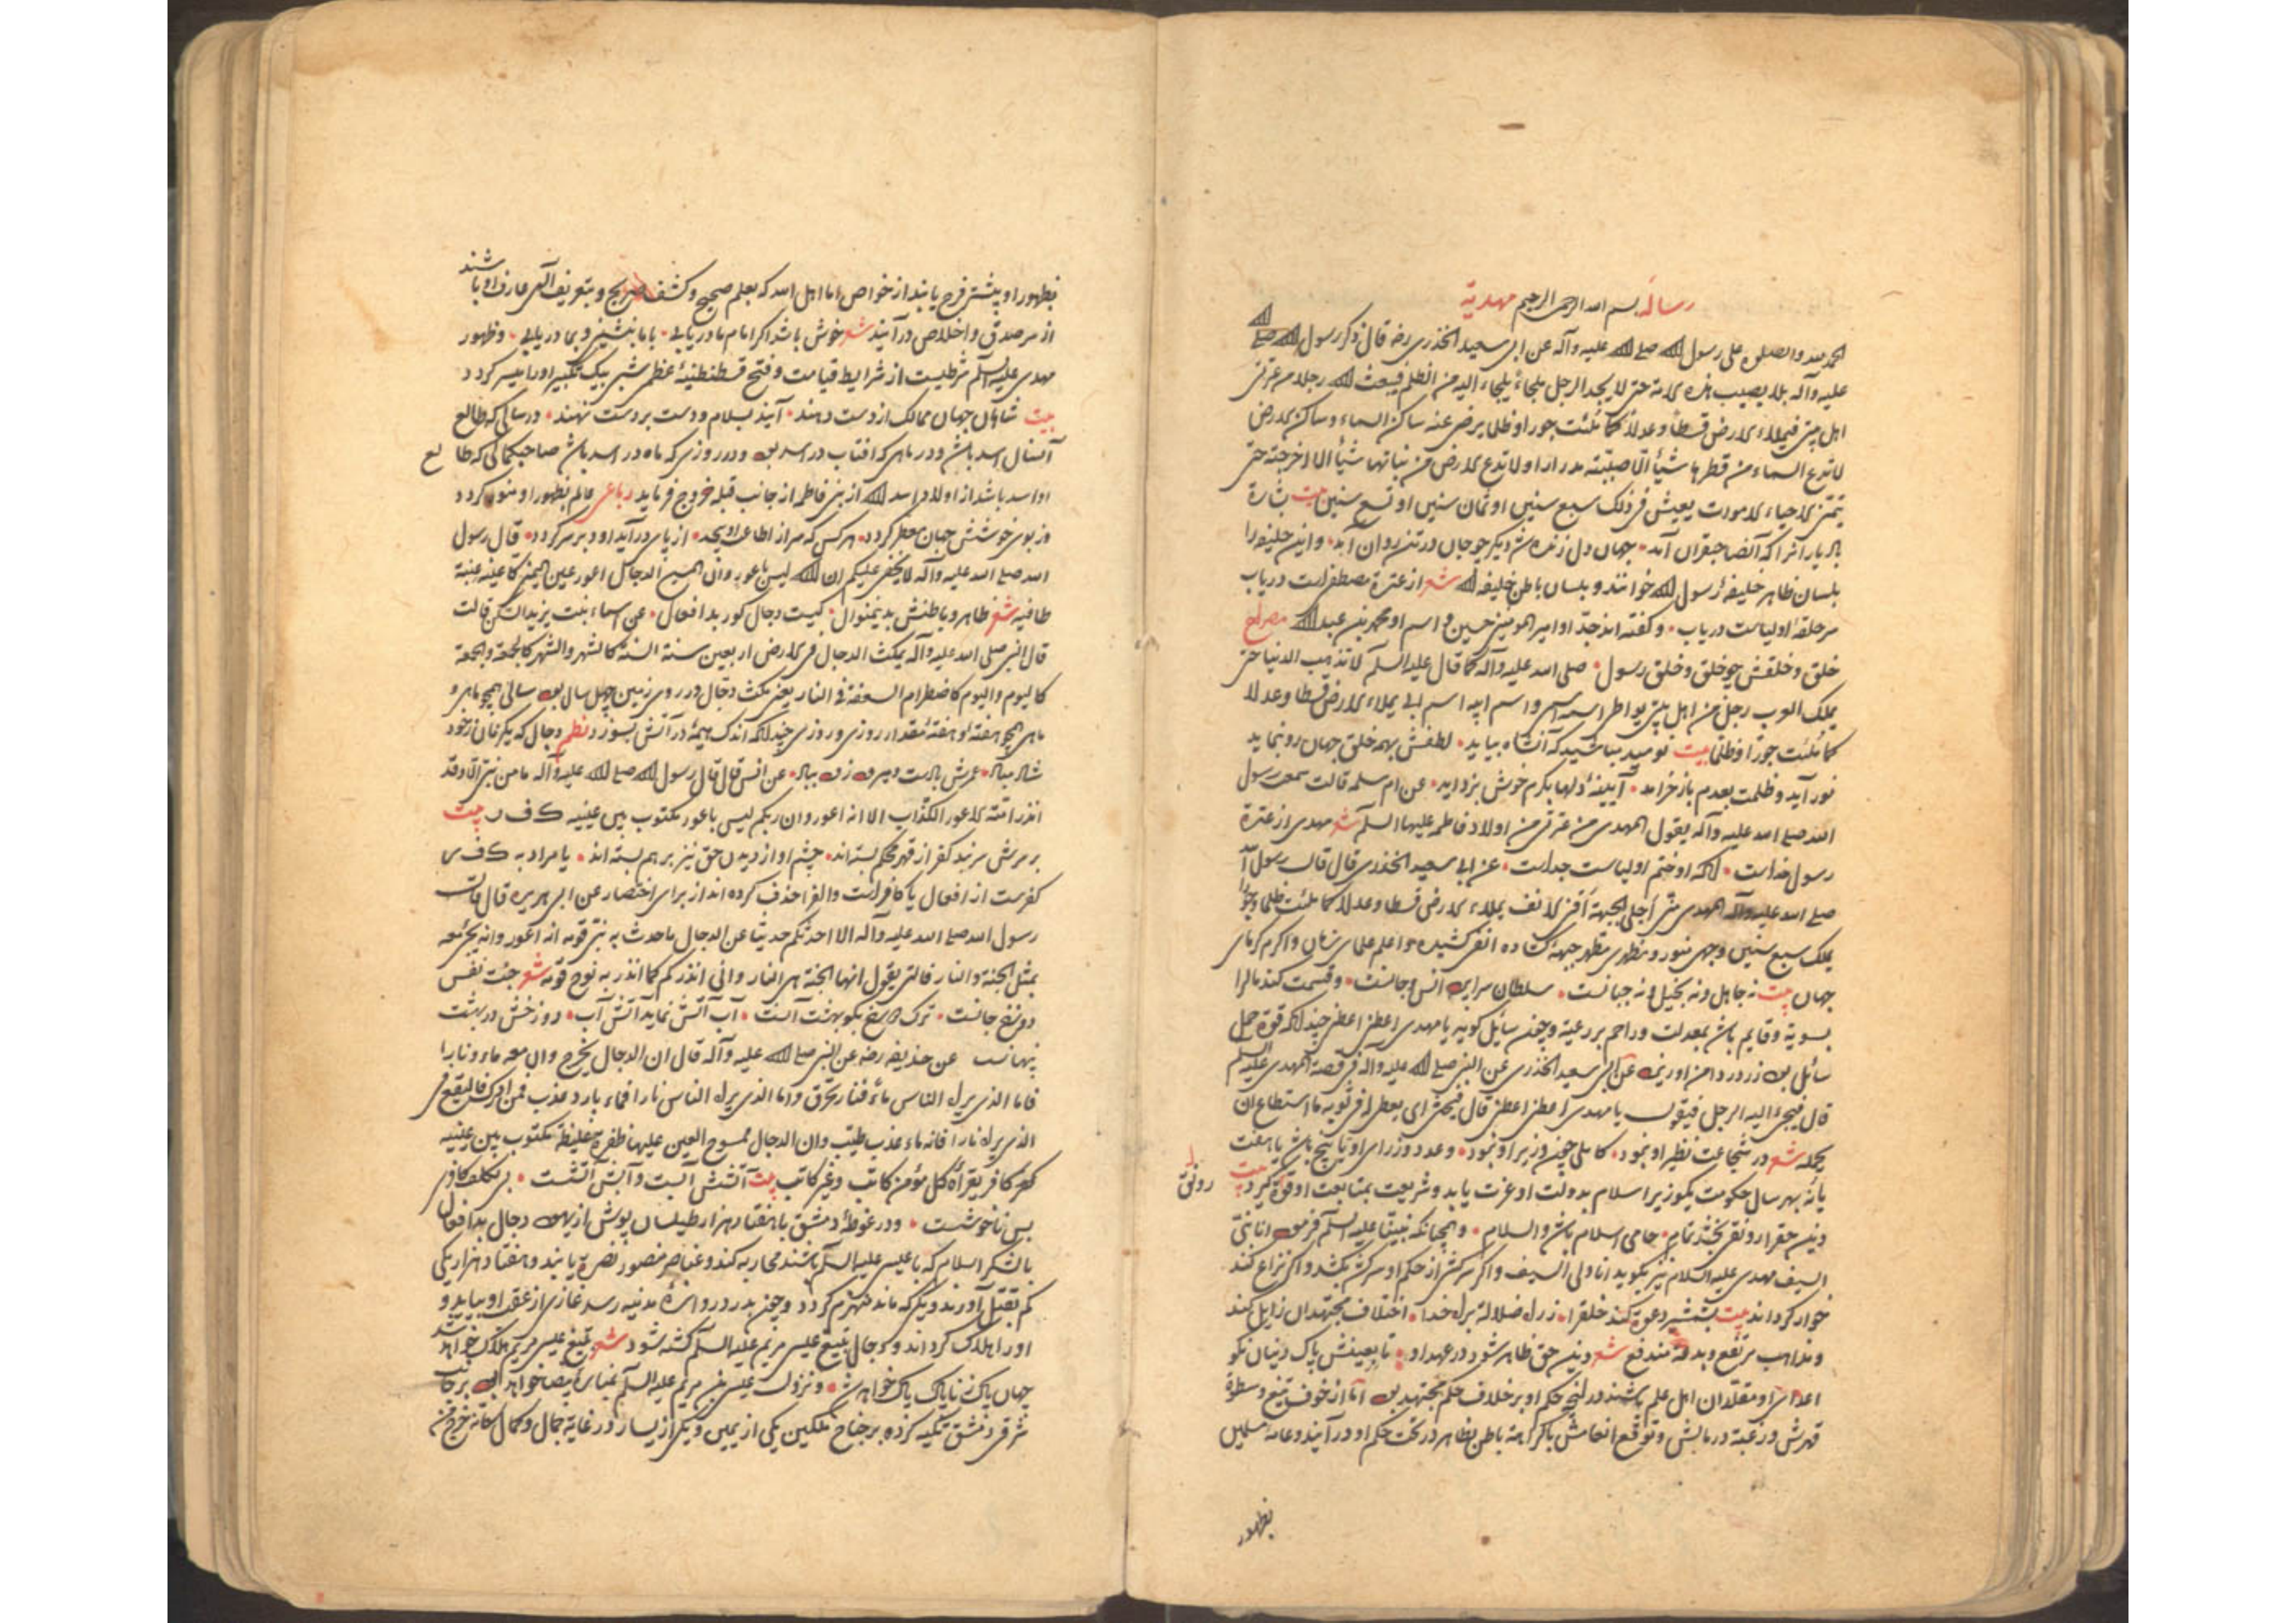 رسالهٔ بسم الله الرحمن الرحیم مهدیة
الحمد لله والصلوة علی رسول الله صلی الله علیه وآله عن ابی سعید الخدری رضه قال ذکر رسول الله صلی الله
علیه وآله بلاء یصیب هذه الامة حتی لا یجد الرجل ملجاءً یلجاء الیه من الظلم فیبعث الله رجلا من عترتی
اهل بیتی فیملاء الارض قسطاً وعدلاً کما ملئت جورا وظلما یرضی عنه ساکن السماء وساکن الارض
لا تدع السماء من قطرها شیأ الا صبّته مدرارا ولا تدع الارض من نباتها شیأ الا اخرجته حتی
یتمنی الاحیاء الاموات یعیش فی ذلک سبع سنین او ثمان سنین او تسع سنین بیت بشارة
یار آنرا که آنصاحبقران آمد جهان دل زنده شد دیگر چو جان در تن روان آمد واین خلیفه را
بلسان ظاهر خلیفهٔ رسول الله خوانند و بلسان باطن خلیفة الله شعر از عترة مصطفی است دریاب
سرحلقهٔ اولیاست دریاب وگفته اند جدّ او امیر المومنین حسین و اسم او محمد بن عبد الله مصراع
خلق وخلقش چو خلق وخلق رسول صلی الله علیه وآله کما قال علیه السلم لا تذهب الدنیا حتی
یملک العرب رجل من اهل بیتی یواطی اسمه اسمی واسم ابیه اسم ابی یملاء الارض قسطا وعدلا
کما ملئت جورًا وظلمًا بیت نومید مباشید که آنشاه بیاید لطفش بهمه خلق جهان رو بنماید
نور آید و ظلمت بعدم باز خرامد آیینهٔ دلها بکرم خوش بزداید عن ام سلمه قالت سمعت رسول
الله صلی الله علیه وآله یقول المهدی من عترتی من اولاد فاطمه علیها السلم شعر مهدی از عترة
رسول خداست زانکه او ختم اولیاست جداست عن ابی سعید الخدری قال قال رسول الله
صلی الله علیه وآله المهدی منی اجلی الجبهة اقنی الانف یملاء الارض قسطا وعدلا کما ملئت ظلما وجورا
یملک سبع سنین وجهی منور و منظری مطهر جبههٔ کشاده انفی کشیده واعلم علمای زمان واکرم کرمای
جهان بیت نه جاهل ونه بخیل ونه جبانست سلطان سرای انس وجانست وقسمت کند مال را
بسویة وقایم باشد بمعدلت وراحم بر رعیة وچون سایل گوید یا مهدی اعطنی اعطنی چندانکه قوة حمل
سائل بود زر در دامن او ریزد عن ابی سعید الخدری عن النبی صلی الله علیه وآله فی قصة المهدی علیه السلم
قال فیجیء الیه الرجل فیقول یا مهدی اعطنی اعطنی قال فیحثی ای یعطی له فی ثوبه ما استطاع ان
یحمله شعر در شجاعت نظیر او نبود کاملی چون وزیر او نبود وعدد وزرای او یا پنج باشد یا هفت
یا نه بهر سال حکومت یکوزیر اسلام بدولت او عزت یابد و شریعت بمتابعت او قوة گیرد بیت رونق
دین حق را رونقی بخشد تمام حامی اسلام باشد والسلام وهمچنانکه نبینا علیه السلم فرمود انا نبی
السیف مهدی علیه السلام نیز بگوید انا ولی السیف واگر سرکشی از حکم او سرکشد بکشد واگر نزاع کند
خوار گرداند بیت بشمشیر دعوة کند خلق را ز راه ضلالة براه خدا اختلاف مجتهدان زایل کند
ومذاهب مرتفع وبدعة مندفع شعر دین حق ظاهر شود در عهد او تا ببینش پاک دینان نکو
اعدای او مقلدان اهل علم باشند در انچه حکم او بر خلاف حکم مجتهد بود اما از خوف تیغ وسطوة
قهرش ورغبة در مالش وتوقع انعامش باکراهة باطن بظاهر در تحت حکم او در آیند وعامه مسلمین
بظهور
بظهور او بیشتر فرح یابند از خواص اما اهل الله که بعلم صحیح وکشف صریح وبتعریف الهی عارف او باشند
از سر صدق واخلاص در آیند شعر خوش باشد اگر امام ما دریابی با ما بنشینی و بما دریابی وظهور
مهدی علیه السلم شرطیست از شرایط قیامت وفتح قسطنطنیهٔ عظمی شبی بیک تکبیر اورا میسر گردد
بیت شاهان جهان ممالک از دست دهند آیند بسلام ودست بر دست نهند در سالی که طالع
آنسال اسد باشد و در ماهی که افتاب در اسد بود و در روزی که ماه در اسد باشد صاحبکمالی که طالع
او اسد باشد از اولاد اسد الله از بنی فاطمه از جانب قبله خروج فرماید رباعی عالم بظهور او منور گردد
وز بوی خوشش جهان معطر گردد هر کس که سر از اطاعت او پیچد از پای در آید او و بی سر گردد قال رسول
الله صلی الله علیه وآله لا یخفی علیکم ان الله لیس باعور وان المسیح الدجال اعور عین الیمنی کأ عینه عنبة
طافیه شعر ظاهر وباطنش بدینمنوال کیست دجال کور بد افعال عن اسماء بنت یزید السکن قالت
قال النبی صلی الله علیه وآله یمکث الدجال فی الارض اربعین سنة السنة کالشهر والشهر کالجمعة والجمعة
کالیوم والیوم کاضطرام السعفة فی النار یعنی مکث دجال در روی زمین چهل سال بود سالی همچو ماهی و
ماهی همچو هفتهٔ وهفتهٔ مقدار روزی و روزی چندانکه اندک هیمهٔ در آتش بسوزد نظم دجال که یکزمان ز خود
شاد مباد عمرش عن انس قال قال رسول الله صلی الله علیه وآله ما من نبی الا وقد
انذر امته الاعور الکذاب الا انه اعور وان ربکم لیس باعور مکتوب بین عینیه ک ف ر بیت
بر سرش سربند کفر از قهر محکم بسته اند چشم او از دیدن حق نیز بر هم بسته اند یا مراد به ک ف ر
کفرست از افعال یا کافر است والف را حذف کرده اند از برای اختصار عن ابی هریره قال قال
رسول الله صلی الله علیه وآله الا احدثکم حدیثا عن الدجال ما حدث به نبی قومه انه اعور وانه یجیء معه
بمثل الجنة والنار فالتی یقول انها الجنة هی النار وانی انذرکم کما انذر به نوح قومه شعر جنت نفس
دوزخ جانست ترک دوزخ بگو بهشت آنست آب آتش نماید آتش آب دوزخش در بهشت
پنهانست عن حذیفه رضه عن النبی صلی الله علیه وآله قال ان الدجال یخرج وان معه ماء ونارا
فاما الذی یراه الناس ماءً فنار تحرق واما الذی یراه الناس نارا فماء بارد عذب فمن ادرک فلیقع فی
الذی یراه نارا فانه ماء عذب طیب وان الدجال ممسوح العین علیها ظفرة غلیظة مکتوب بین عینیه
کافر یقرأه کل مؤمن کاتب وغیر کاتب بیت آتشش آبست وآبش آتشست بی تکلف کافری
بس ناخوشست ودر غوطهٔ دمشق با هفتاد هزار طیلسان پوش از یهود دجال بد افعال
با لشکر اسلام که با عیسی علیه السلم باشند محاربه کند وعناصر منصور نصرة یابند و هفتاد هزار یکی
کم بقتل آورند ویکی که ماند منهزم گردد وچون بدر دروازهٔ مدینه رسد غازی از عقب او بیاید و
اورا هلاک گرداند ودجال بتیغ عیسی مریم علیه السلم کشته شود شعر بتیغ عیسی مریم هلاک خواهد شد
جهان پاک ز ناپاک پاک خواهد شد ونزول عیسی بن مریم علیه السلم بمنارهٔ بیضا خواهد بود بر جانب
شرقی دمشق تکیه کرده بر جناح ملکین یکی از یمین ویکی از یسار در غایة جمال وکمال کانه خرج من